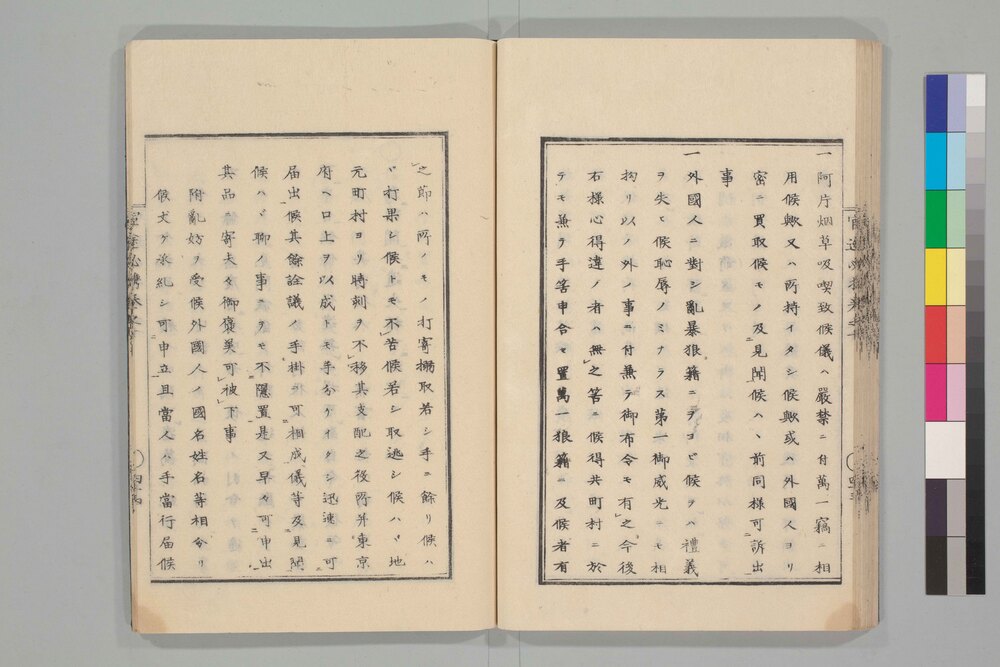 一阿片烟草吸喫致候儀ハ嚴禁ニ付萬一竊ニ相
用候歟又ハ所持イタシ候歟或ハ外國人ヨリ
密ニ買取候モノ及見聞候ハヽ前同樣可訴出
事
一外國人ニ對シ亂暴狼籍ニヲヨビ候ヲハ禮義
ヲ失ヒ候恥辱ノミナラス第一御威光ニモ相
拘リ以ノ外ノ事ニ付兼テ御布令モ有之今後
右樣心得違ノ者ハ無之筈ニ候得共町村ニ於
テモ兼テ手筈申合セ置萬一狼籍ニ及候者有
之節ハ所ノモノ打寄搦取若シ手ニ餘リ候ハ
ヽ打果シ候トモ不苦候若シ取逃シ候ハヽ地
元町村ヨリ時刻ヲ不移其支配之役所并東京
府ヘ口上ヲ以成トモ手分ケイタシ迅速ニ可
届出候其餘詮議ノ手掛ニ可相成儀等及見聞
候ハヽ聊ノ事ニテモ不隱置是又早々可申出
其品ニ寄夫々御褒美可被下事
附亂妨ヲ受候外國人ノ國名姓名等相分リ
候丈ケ承糺シ可申立且當人ハ手當行届候
四十四
四十五